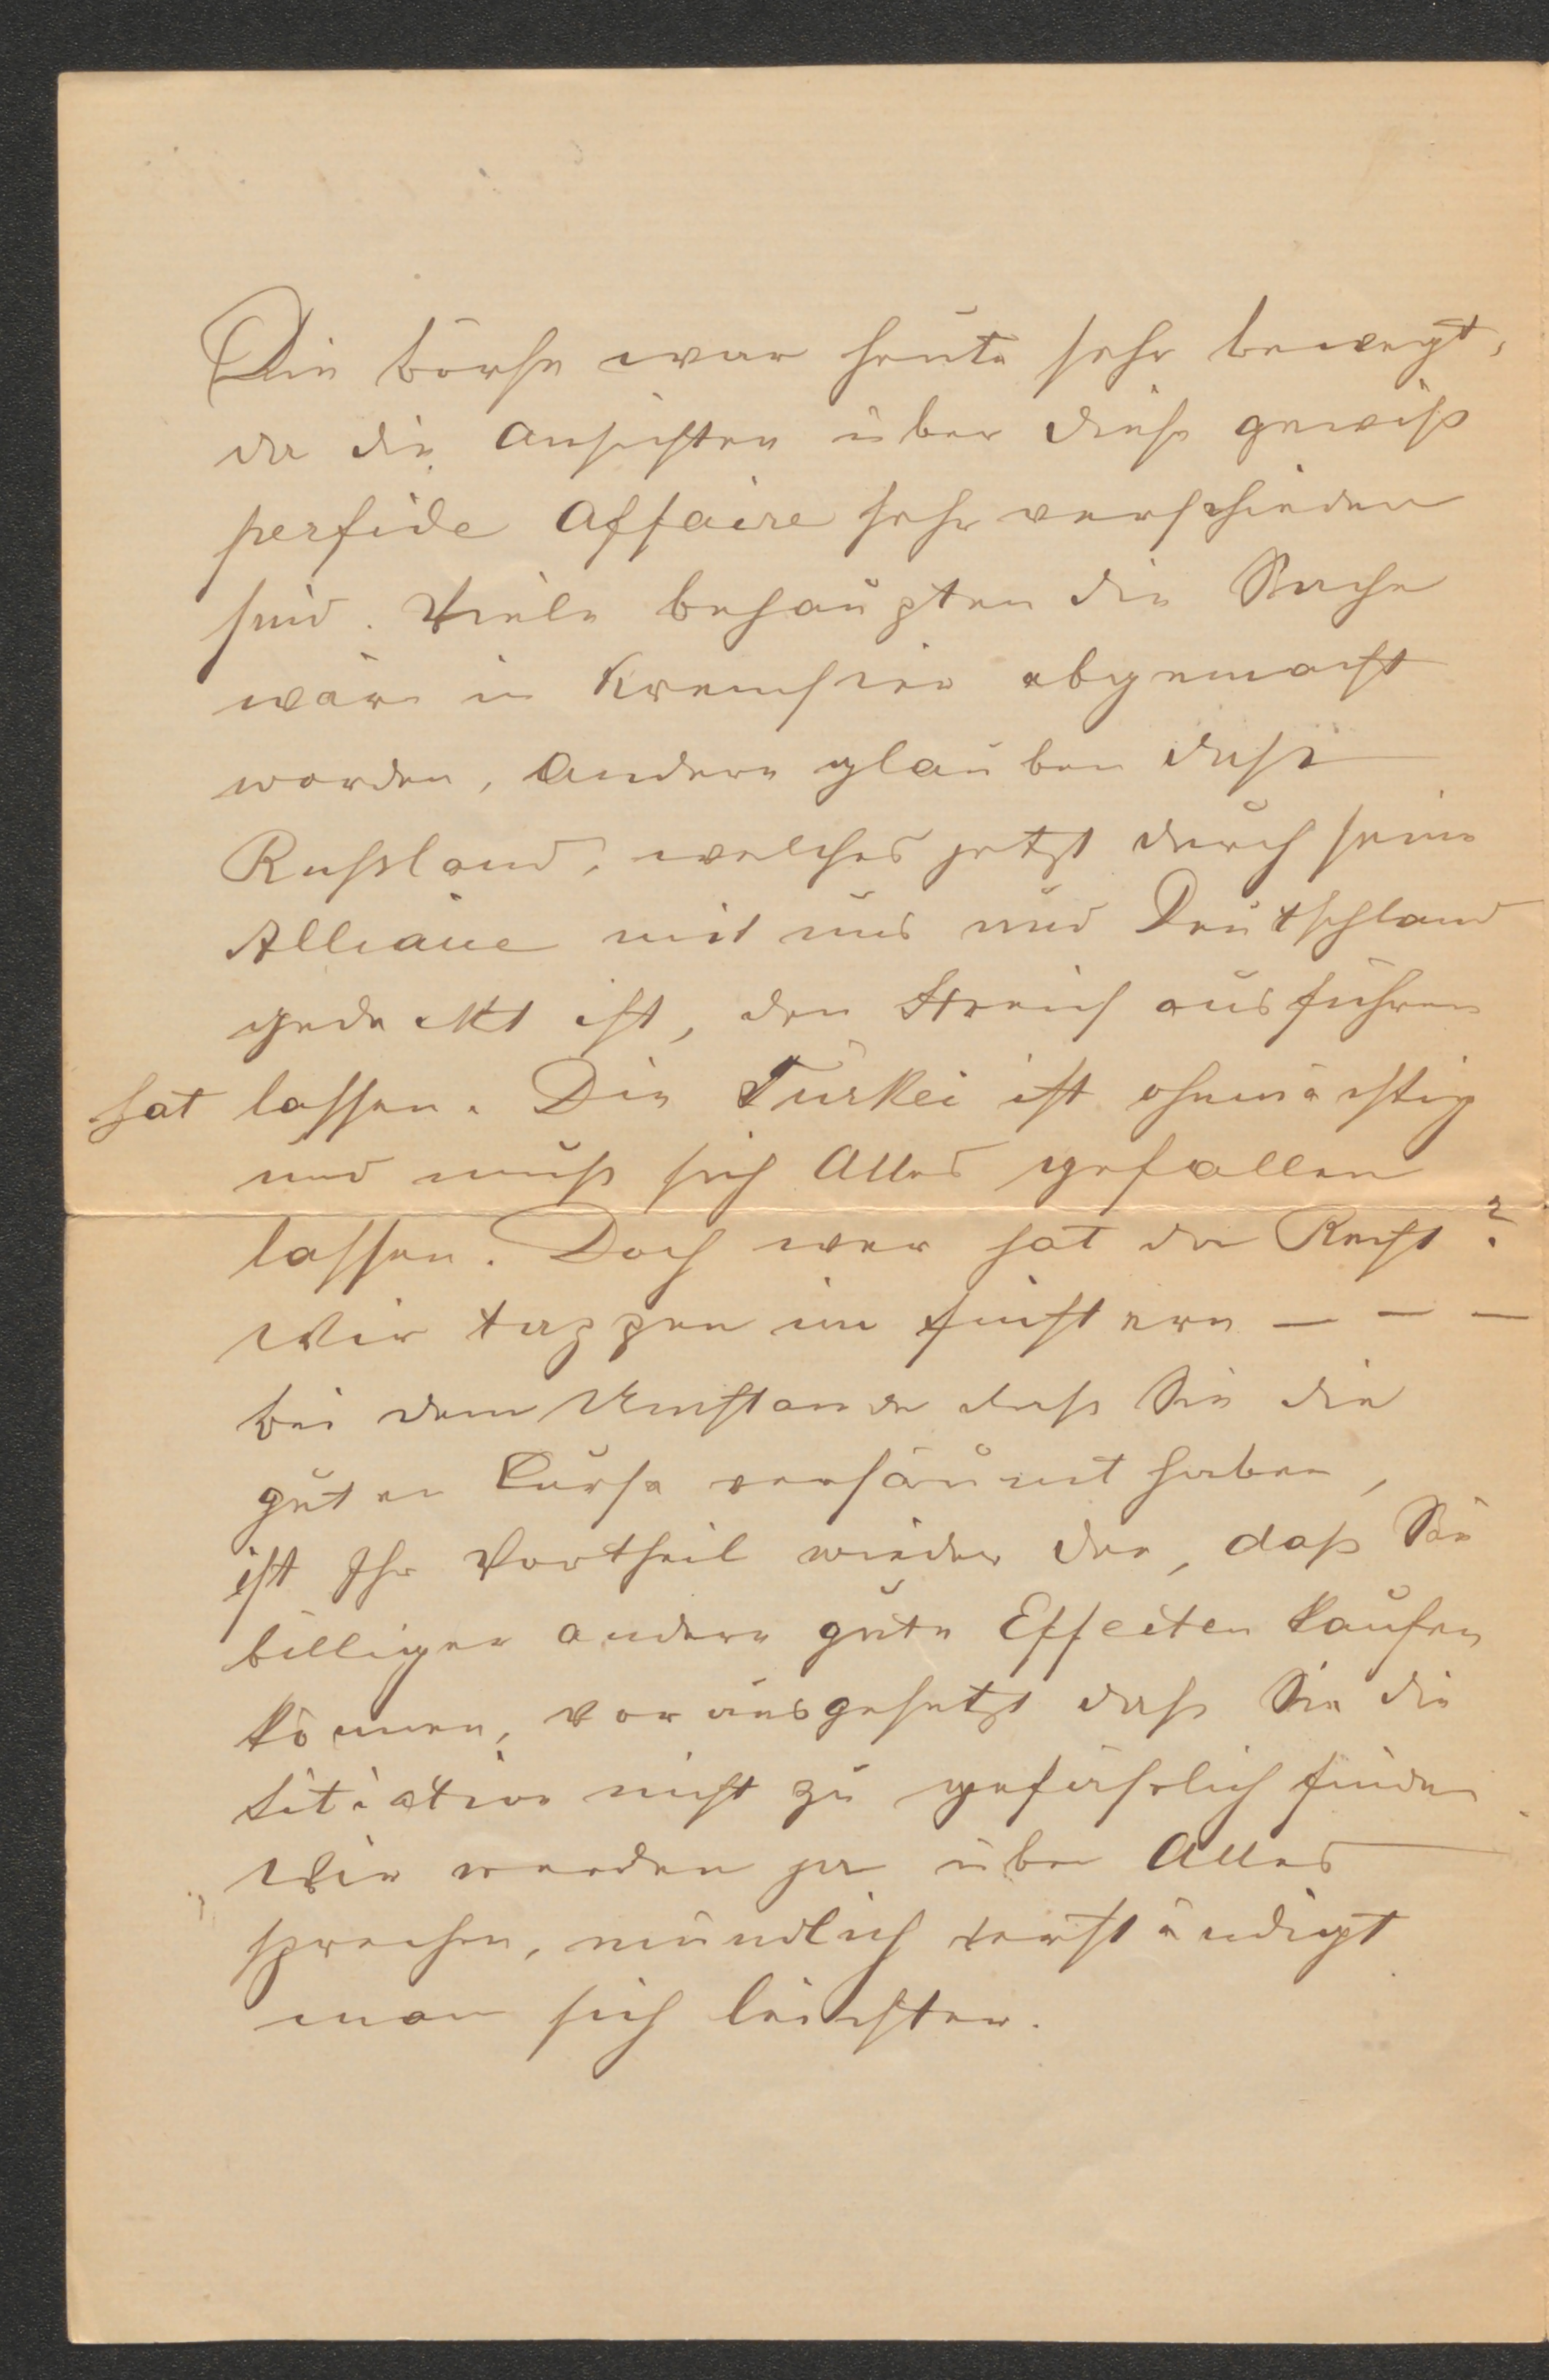 Die börse war heute sehr bewegt,
da die Ansichten über diese gewiß
perfide Affaire sehr verschieden
sind. Viele behaupten die Sache
wäre in Kremsier abgemacht
worden, Andere glauben dass
Russland, welches jetzt durch seine
Alliance mit uns und Deutschland
gedeckt ist, den Streich ausführen
hat lassen. Die Türkei ist ohnmächtig
und muß sich Alles gefallen
lassen. Doch wer hat da Recht?
Wir tappen im finstern — — —
bei dem Umstande dass Sie die
guten Curse versäumt haben,
ist Ihr Vortheil wieder der, daß Sie
billiger andere gute Effecten kaufen
können, vorausgesetzt dass Sie die
Situation nicht zu gefährlich finden
Wir werden ja über Alles
sprechen, mündlich verständigt
man sich leichter.